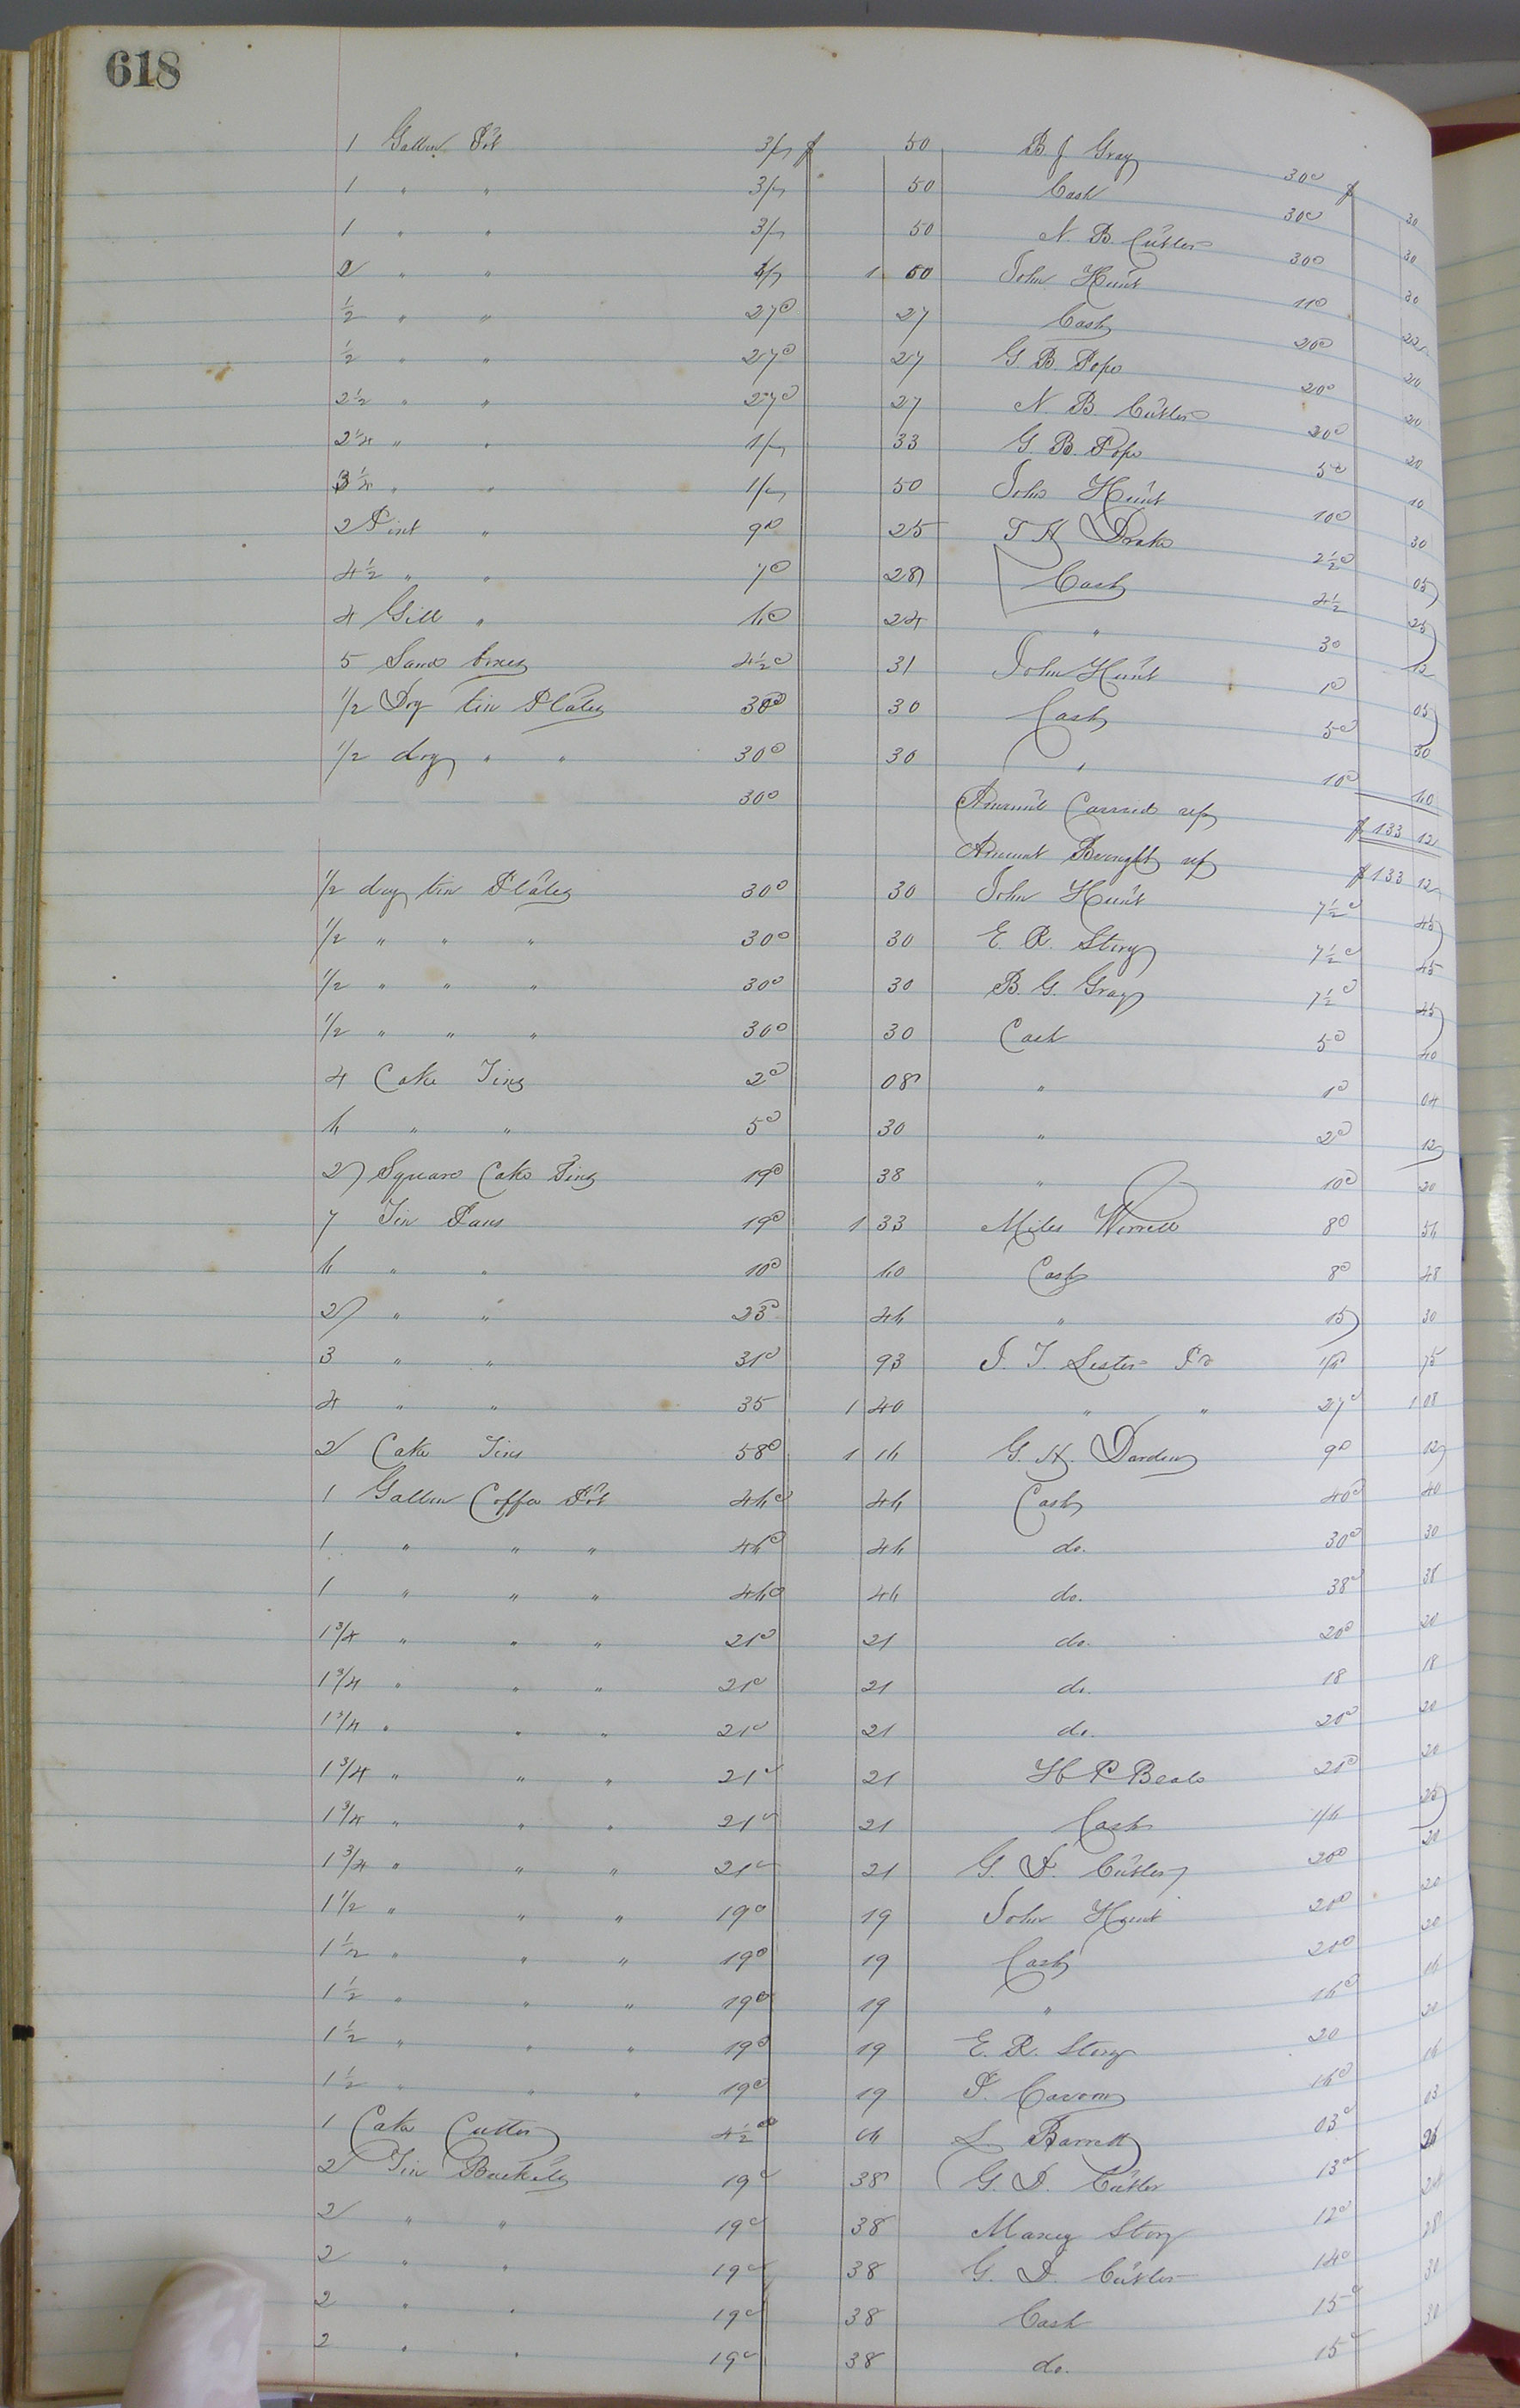 618
1 Gallon Pot 3/ $ 50 B. J. Gray 30c $ 30
1 " " 3/ 50 Cash 30c 30
1 " " 3/ 50 N. B. Cutler 30c 30
2 " " 1 00 John Hunt 11c 22
1/2 " " 27c 27 Cash 20c 20
1/2 " " 27c 27 G. B. Pope 20c 20
2 1/2 " " 27c 27 N. B. Cutler 20c 20
2 1/4 " " 1/ 33 G. B. Pope 5c 10
3 1/4 " " 1/ 50 John Hunt 10c 30
2 Pint " 9c 25 T H Drake 2 1/2c 05
4 1/2 " " 7c 28 Cash 25
4 Gill " 6c 24 " 3c 12
5 Sand boxes 4 1/2c 31 John Hunt 1c 05
1/2 Doz tin Plates 30c 30 Cash 5c 30
1/2 doz " " 30c 30 " 10c 60
30c Amount Carried up $133 12
Amount Brought up $133 12
1/2 doz tin Plates 30c 30 John Hunt 7 1/2c 45
1/2 " " " 30c 30 E. R. Story 7 1/2c 45
1/2 " " " 30c 30 B. G. Gray 7 1/2c 45
1/2 " " " 30c 30 Cash 5c
4 Cake Tins 2c 08 " 1c 04
6 " " 5c 30 " 2c 12
2 Square Cake Tins 19c 38 " 10c 20
7 Tin Pans 19c 1 33 Miles Worrell 8c 56
6 " " 10c 60 Cash 8c 48
2 " " 23c 46 " 15 30
3 " " 31c 93 J. T. Lester 75
4 " " 35 1 40 " " 27c 1 08
2 Cake Tins 58c 1 16 G. H. Darden 9c
1 Gallon Coffee Pot 46c 46 Cash 40c 40
1 " " " 46c 46 do. 30c 30
1 " " " 46c 46 do. 38c 38
1 3/4 " " " 21c 21 do. 20c 20
1 3/4 " " " 21c 21 do. 18 18
1 3/4 " " " 21c 21 do. 20c 20
1 3/4 " " " 21c 21 H P Beale 20c 20
1 3/4 " " " 21c 21 Cash 1/6 25
1 3/4 " " " 21c 21 G. D. Cutler 20c 20
1 1/2 " " " 19c 19 John Hunt 20c 20
1 1/2 " " " 19c 19 Cash 20c 20
1 1/2 " " " 19c 19 " 16c 16
1 1/2 " " " 19c 19 E. R. Story 20 20
1 1/2 " " " 19c 19 16c 16
1 Cake Cutter 4 1/2c 06 Barrett 03c 03
2 Tin Buckets 19c 38 G. D. Cutler 13c 26
2 " " 19c 38 Story 12c 24
2 " " 19c 38 G. D. Cutler 14c 28
2 " " 19c 38 Cash 15c 30
2 " " 19c 38 do. 15c 30